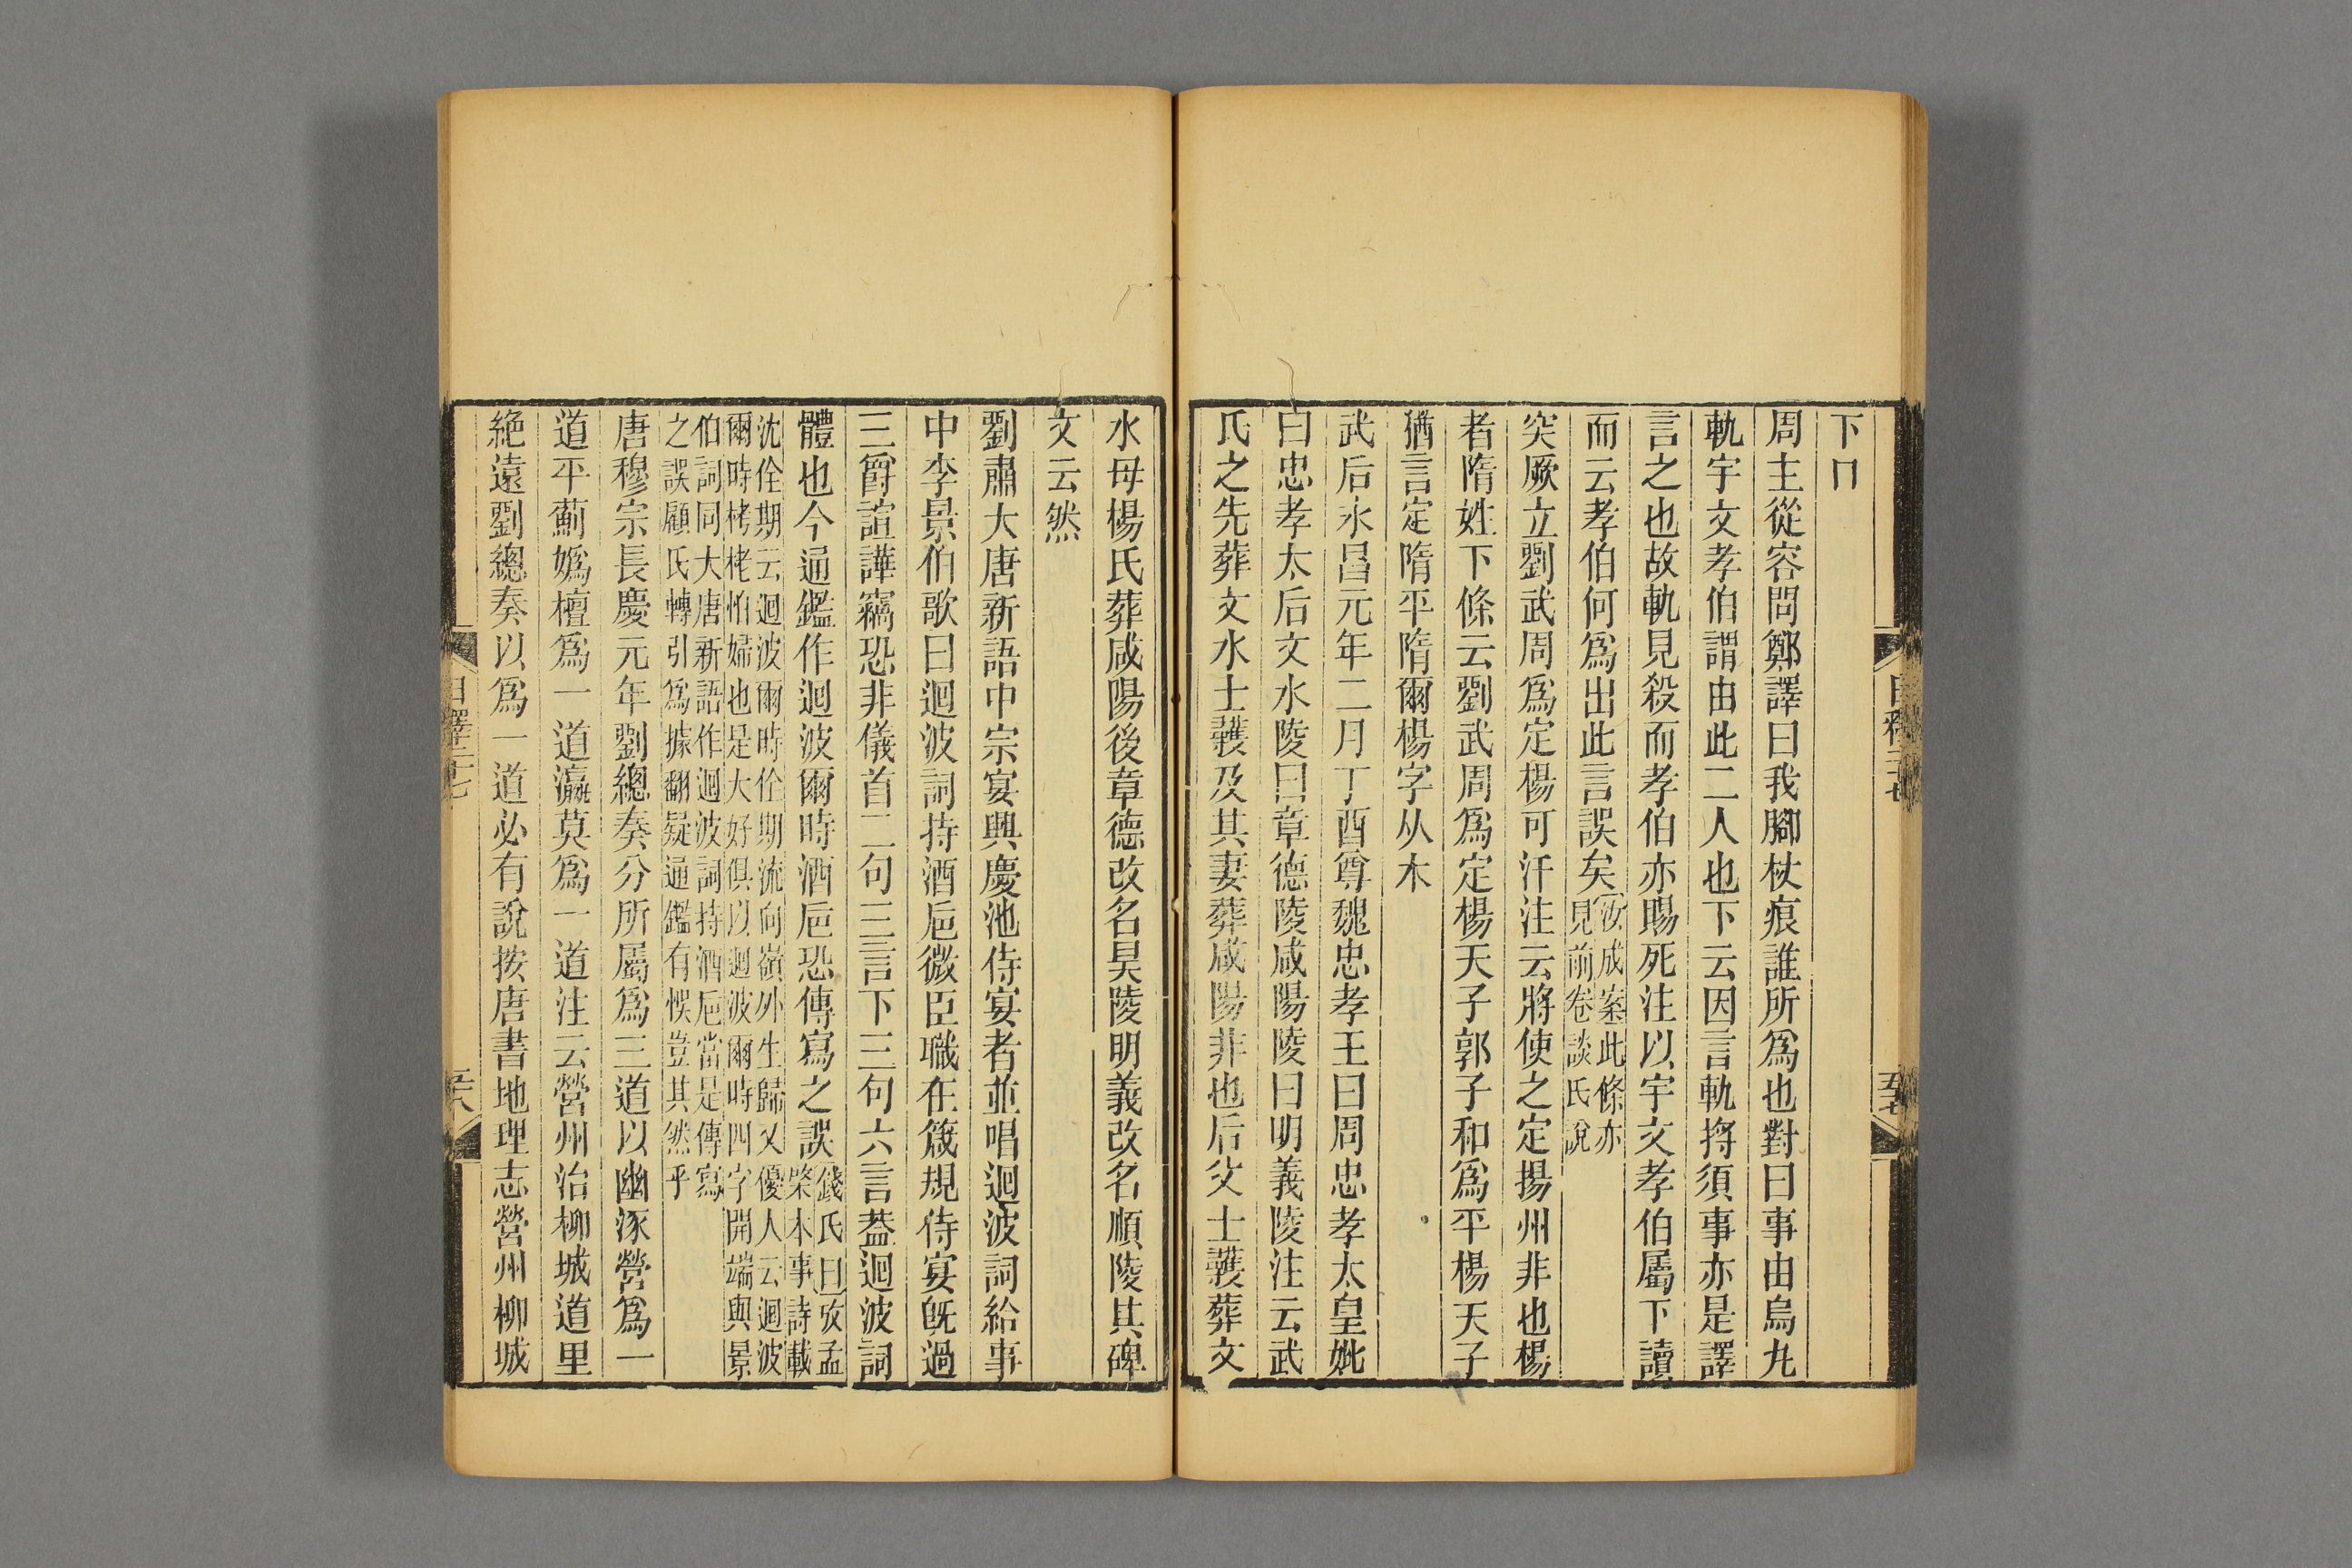 下口
周主從容問鄭譯曰我腳杖痕誰所爲也對曰事由烏丸
軌宇文孝伯謂由此二人也下云因言軌捋須事亦是譯
言之也故軌見殺而孝伯亦賜死注以宇文孝伯屬下讀
而云孝伯何爲出此言誤矣汝成案此條亦
見前卷談氏說
突厥立劉武周爲定楊可汗注云將使之定揚州非也楊
者隋姓下條云劉武周爲定楊天子郭子和爲平楊天子
猶言定隋平隋爾楊字从木
武后永昌元年二月丁酉尊魏忠孝王曰周忠孝太皇妣
曰忠孝太后文水陵曰章德陵咸陽陵曰明義陵注云武
氏之先葬文水士彠及其妻葬咸陽非也后父士彠葬文
水母楊氏葬咸陽後章德改名昊陵明義改名順陵其碑
文云然
劉肅大唐新語中宗宴興慶池侍宴者並唱迴波詞給事
中李景伯歌曰迴波詞持酒卮微臣職在箴規侍宴旣過
三爵諠譁竊恐非儀首二句三言下三句六言葢迴波詞
體也今通鑑作迴波爾時酒卮恐傳寫之誤錢氏曰攷孟
棨本事詩載
沈佺期云迴波爾時佺期流向嶺外生歸又優人云迴波
爾時栲栳怕婦也是大好俱以迴波爾時四字開端與景
伯詞同大唐新語作迴波詞持酒卮當是傳寫
之誤顧氏轉引爲據翻疑通鑑有悞豈其然乎
唐穆宗長慶元年劉總奏分所屬爲三道以幽涿營爲一
道平薊嬀檀爲一道瀛莫爲一道注云營州治柳城道里
絶遠劉總奏以爲一道必有說按唐書地理志營州柳城